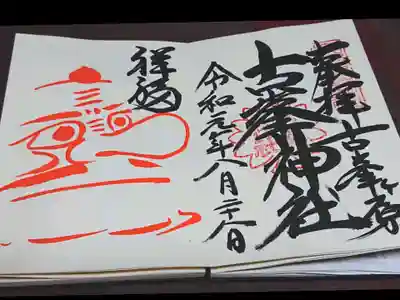 奉拝 古峯ヶ原
古峯神社
令和元年八月二十八日
祥福